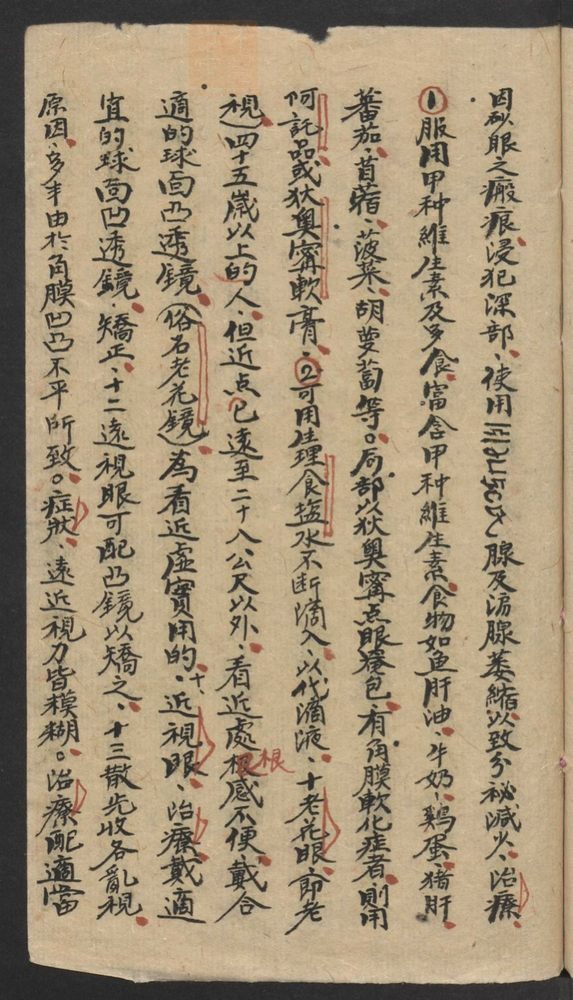 因砂眼之瘢痕、浸犯深部、使用 腺及淚腺萎縮以致分祕減少、治療、
①服用甲种維生素及多食富含甲种維生素食物如鱼肝油、牛奶、鷄蛋、猪肝
蕃茄、苜蓿、菠菜、胡萝蔔等。局部以狄奧寗点眼瘗包、有角膜軟化症者、則用
阿託品或狄奧寗軟膏、②可用生理食塩水不断滴入、以代淚液、十老花眼、即老
視、四十五歲以上的人、但近点已遠至二十八公尺以外、看近處 根感不便、戴合
適的球面凸透鏡、(俗名老花鏡)為看近虛實用的、十一、近視眼、治療、戴適
宜的球面凹透鏡、矯正、十二遠視眼可配凸鏡以矯之、十三散光收各亂視、
原因、多半由於角膜凹凸不平所致。症狀、遠近視力皆模糊。治療配適當